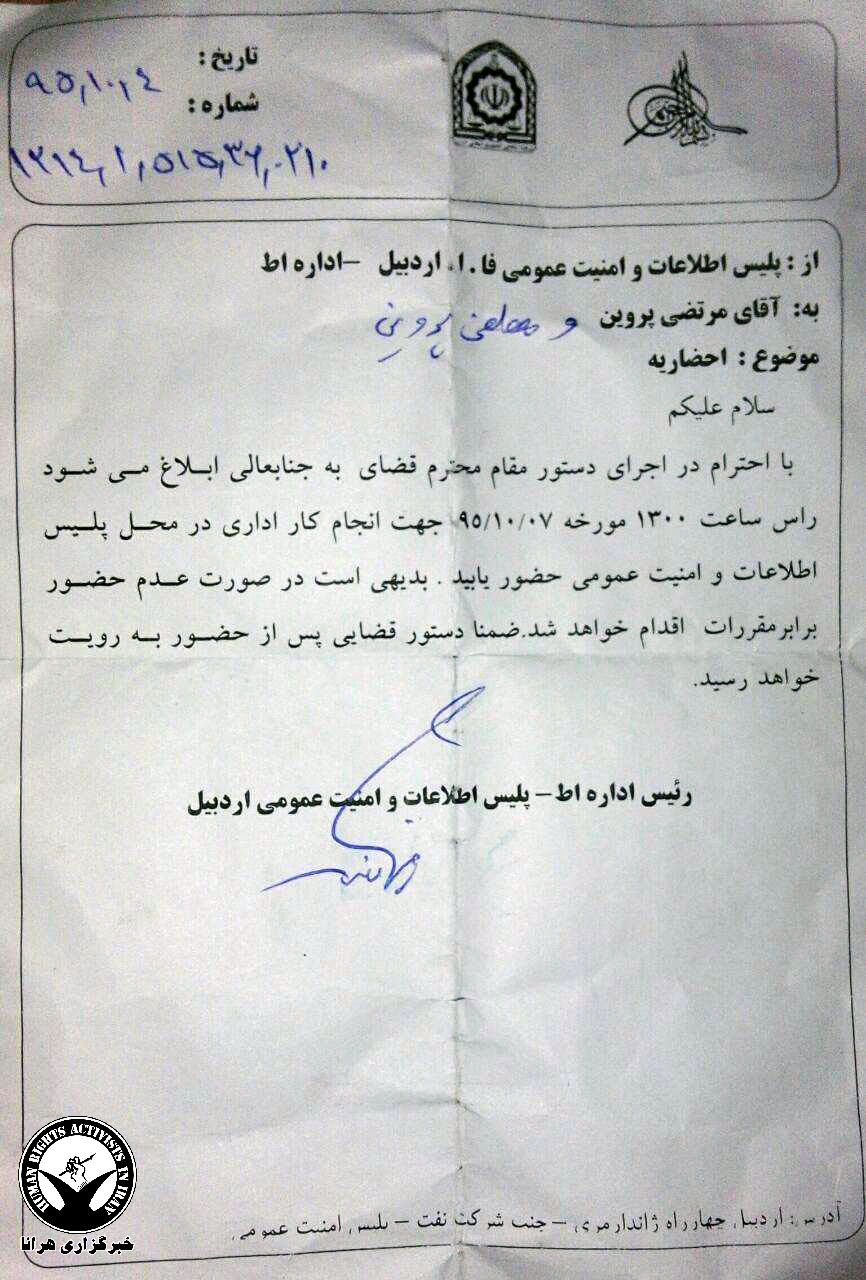 تاریخ :
۹۵,۱۰,۴
شماره :
از : پلیس اطلاعات و امنیت عمومی فا . ا. اردبیل – اداره اط
به: آقای مرتضی پروین و مصطفی پروین
موضوع : احضاریه
سلام علیکم
با احترام در اجرای دستور مقام محترم قضای به جنابعالی ابلاغ می شود
راس ساعت ۱۳۰۰ مورخه ۹۵/۱۰/۰۷ جهت انجام کار اداری در محل پلیس
اطلاعات و امنیت عمومی حضور یابید . بدیهی است در صورت عدم حضور
برابرمقررات اقدام خواهد شد.ضمنا دستور قضایی پس از حضور به رویت
خواهد رسید.
رئیس اداره اط – پلیس اطلاعات و امنیت عمومی اردبیل
آدرس: اردبیل چهارراه ژاندارمری – جنب شرکت نفت – پلیس امنیت عمومی
HUMAN RIGHTS ACTIVISTS IN IRAN
خبرگزاری هرانا